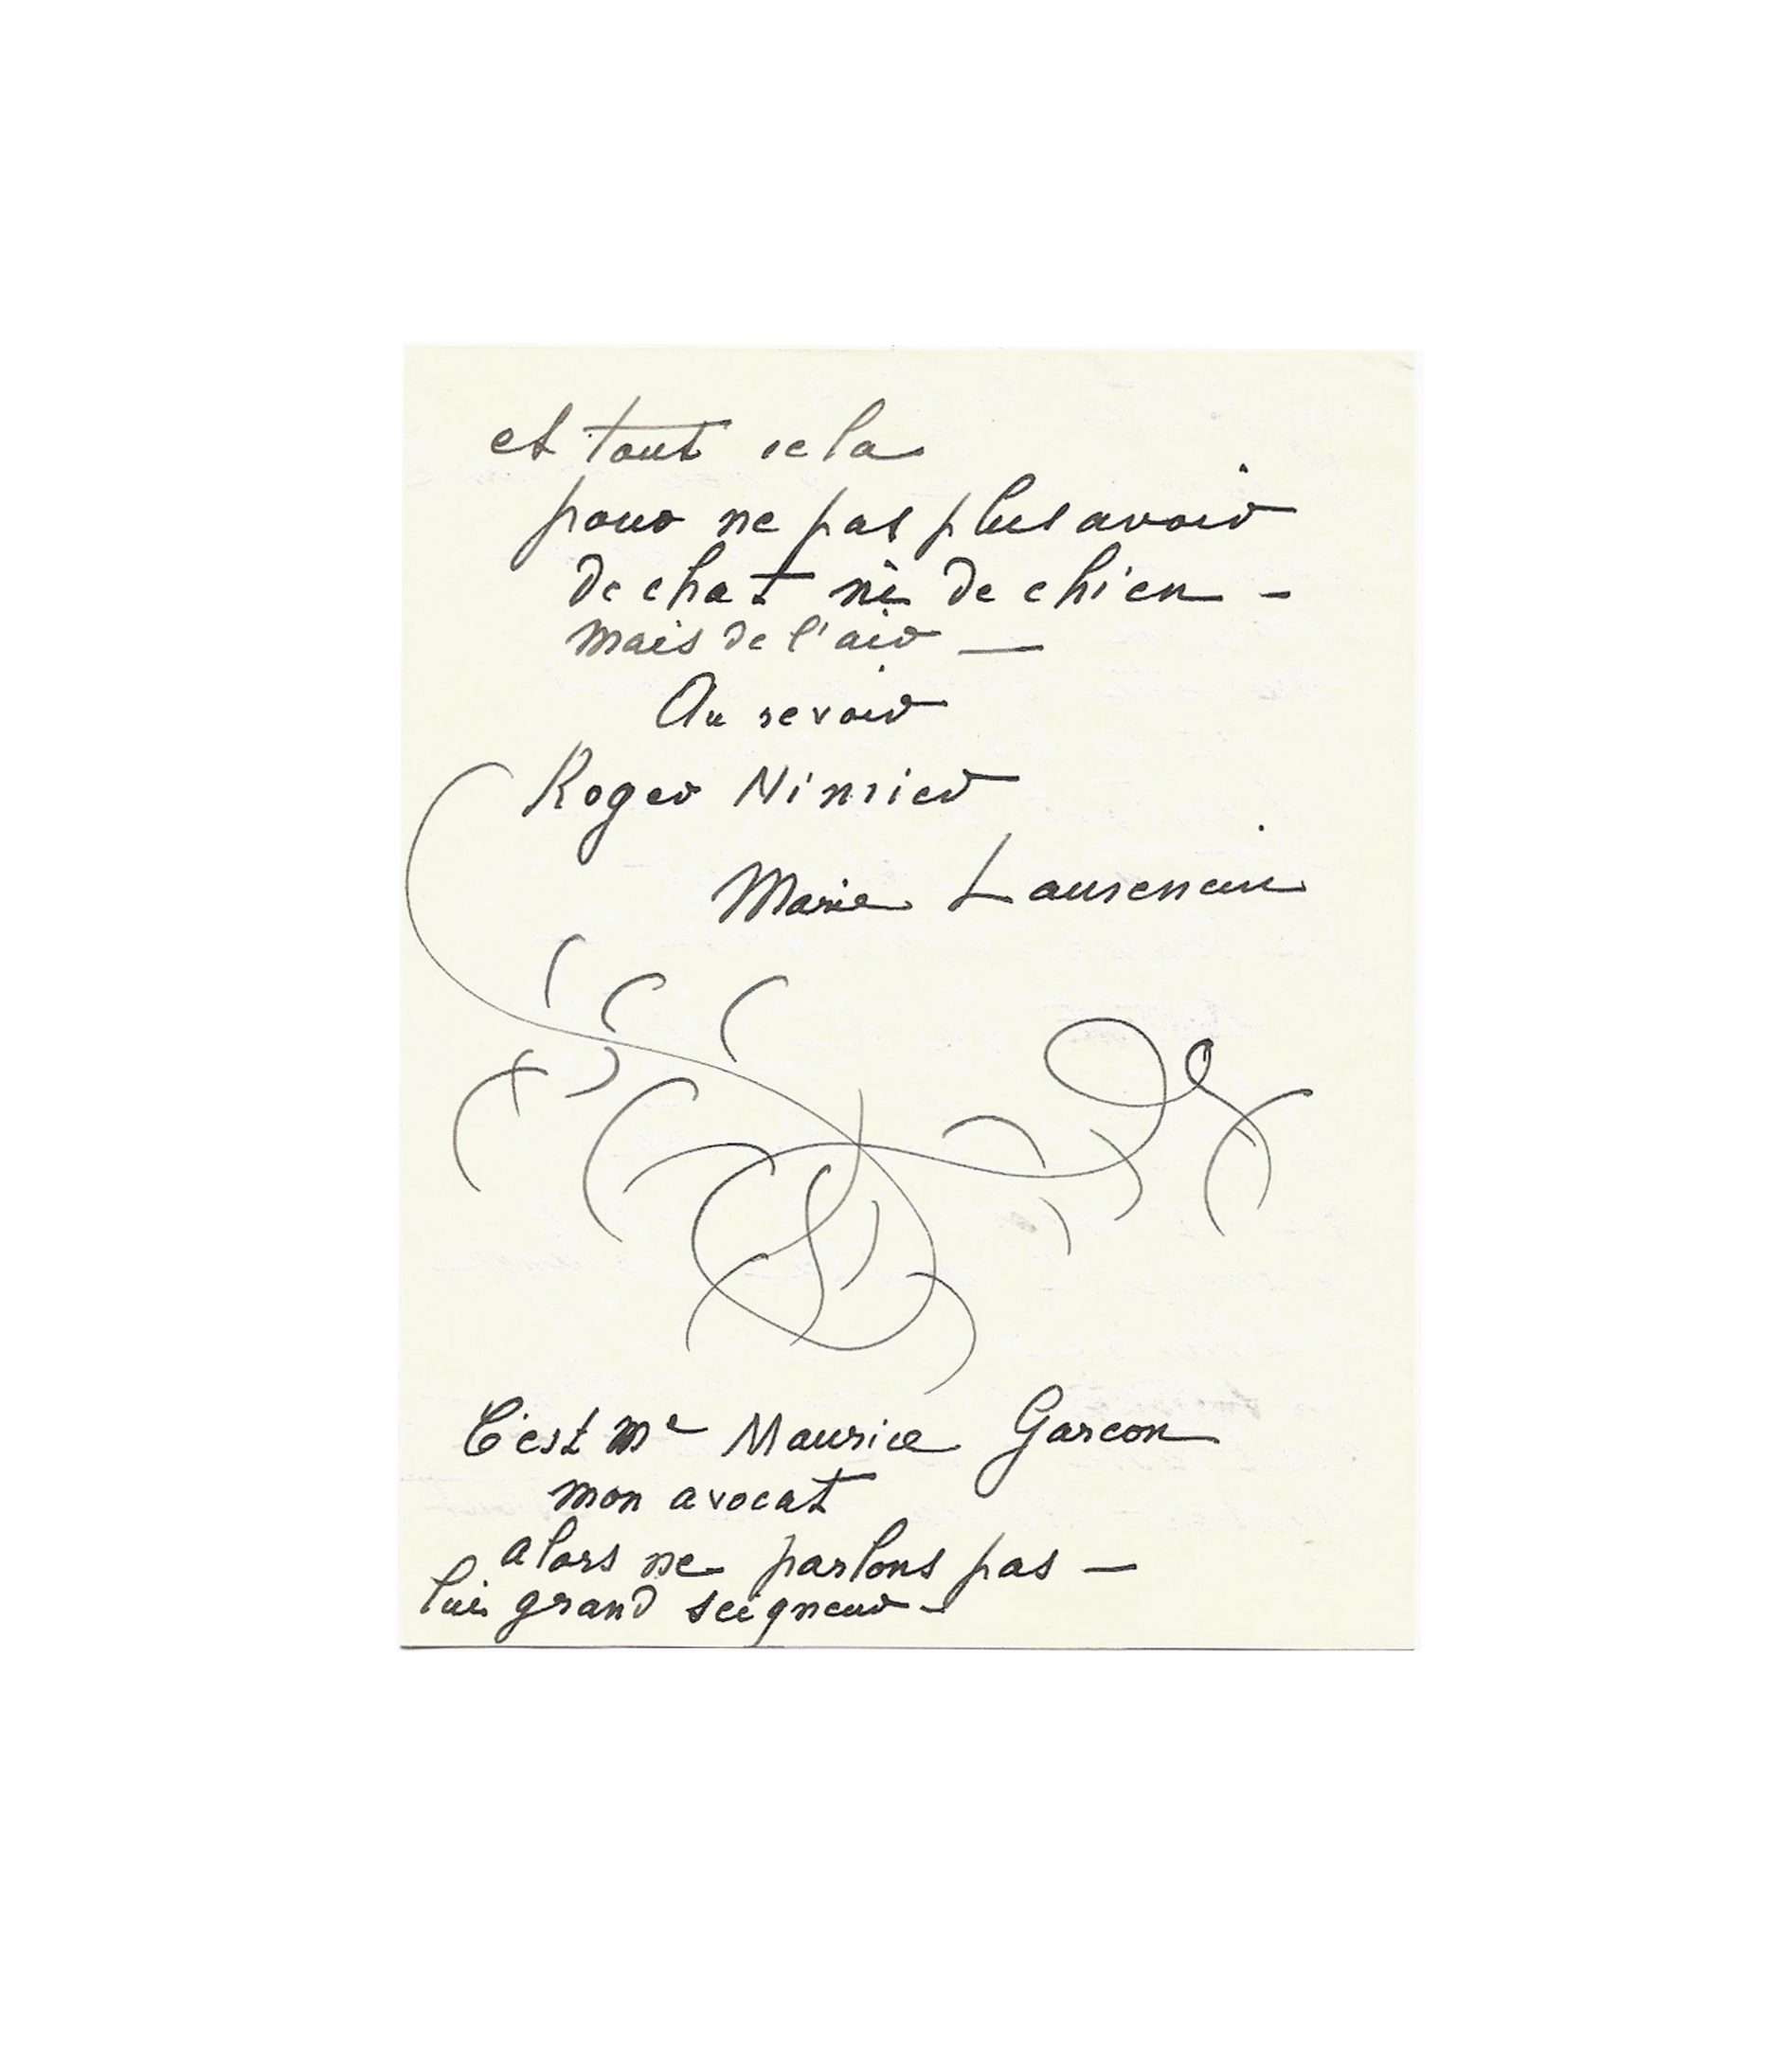 et tout cela
pour ne pas plus avoir
de chat ni de chien –
mais de l'air —
Au revoir
Roger Nimier
Marie Laurencin
C'est Me Maurice Garcon
mon avocat
alors ne parlons pas –
lui grand seigneur –